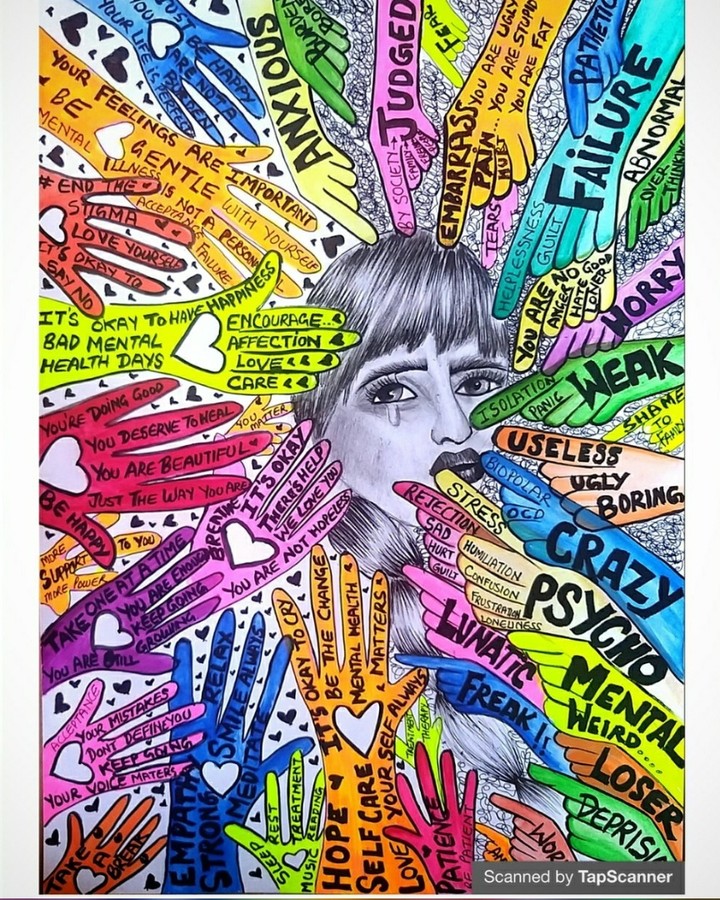 JUST BE HAPPY
YOUR LIFE IS PERFECT
YOU ARE NOT A
BURDEN
YOUR FEELINGS ARE IMPORTANT
BE GENTLE WITH YOURSELF
MENTAL
ILLNESS IS NOT A PERSONAL
FAILURE
ACCEPTANCE
# END THE
STIGMA
LOVE YOURSELF
IT'S OKAY TO
SAY NO
IT'S OKAY TO HAVE HAPPINESS
BAD MENTAL
HEALTH DAYS
ENCOURAGE...
AFFECTION
LOVE
CARE
YOU'RE DOING GOOD
YOU DESERVE TO HEAL
YOU ARE BEAUTIFUL
JUST THE WAY YOU ARE
BE HAPPY
YOU
MATTER
MORE
SUPPORT
MORE POWER
TO YOU
BREATHE
IT'S OKAY
THERE'S HELP
WE LOVE YOU
YOU ARE NOT HOPELESS
TAKE ONE AT A TIME
YOU ARE ENOUGH
KEEP GOING
YOU ARE STILL
GROWING
ACCEPTANCE
YOUR MISTAKES
DONT DEFINE YOU
KEEP GOING
YOUR VOICE MATTERS
TAKE A BREAK
EMPATHY
STRONG
RELAX
SMILE ALWAYS
SLEEP
REST
TREATMENT
MUSIC
READING
HOPE
IT'S OKAY TO CRY
BE THE CHANGE
MENTAL HEALTH
MATTERS
SELF CARE
LOVE YOUR SELF ALWAYS
TREATMENT
THERAPY
PATIENCE
BE PATIENT
ANXIOUS
BURDEN
BORING
JUDGED
BY SOCIETY
FEAR
EMBARRASS
PAIN...
HURT
YOU ARE UGLY
YOU ARE STUPID
YOU ARE FAT
TEARS
PATHETIC
FAILURE
HELPLESSNESS
GUILT
ABNORMAL
OVER
THINKING
YOU ARE NO GOOD
ANGER
HATE
LONER
WORRY
WEAK
ISOLATION
PANIC
SHAME
TO
FAMILY
USELESS
UGLY
BORING
BIOPOLAR
OCD
CRAZY
STRESS
REJECTION
SAD
HURT
GUILT
HUMILIATION
CONFUSION
FRUSTRATION
LONELINESS
PSYCHO
LUNATIC
MENTAL
WEIRD....
FREAK !!
LOSER
DEPRISI
WOR
Scanned by TapScanner